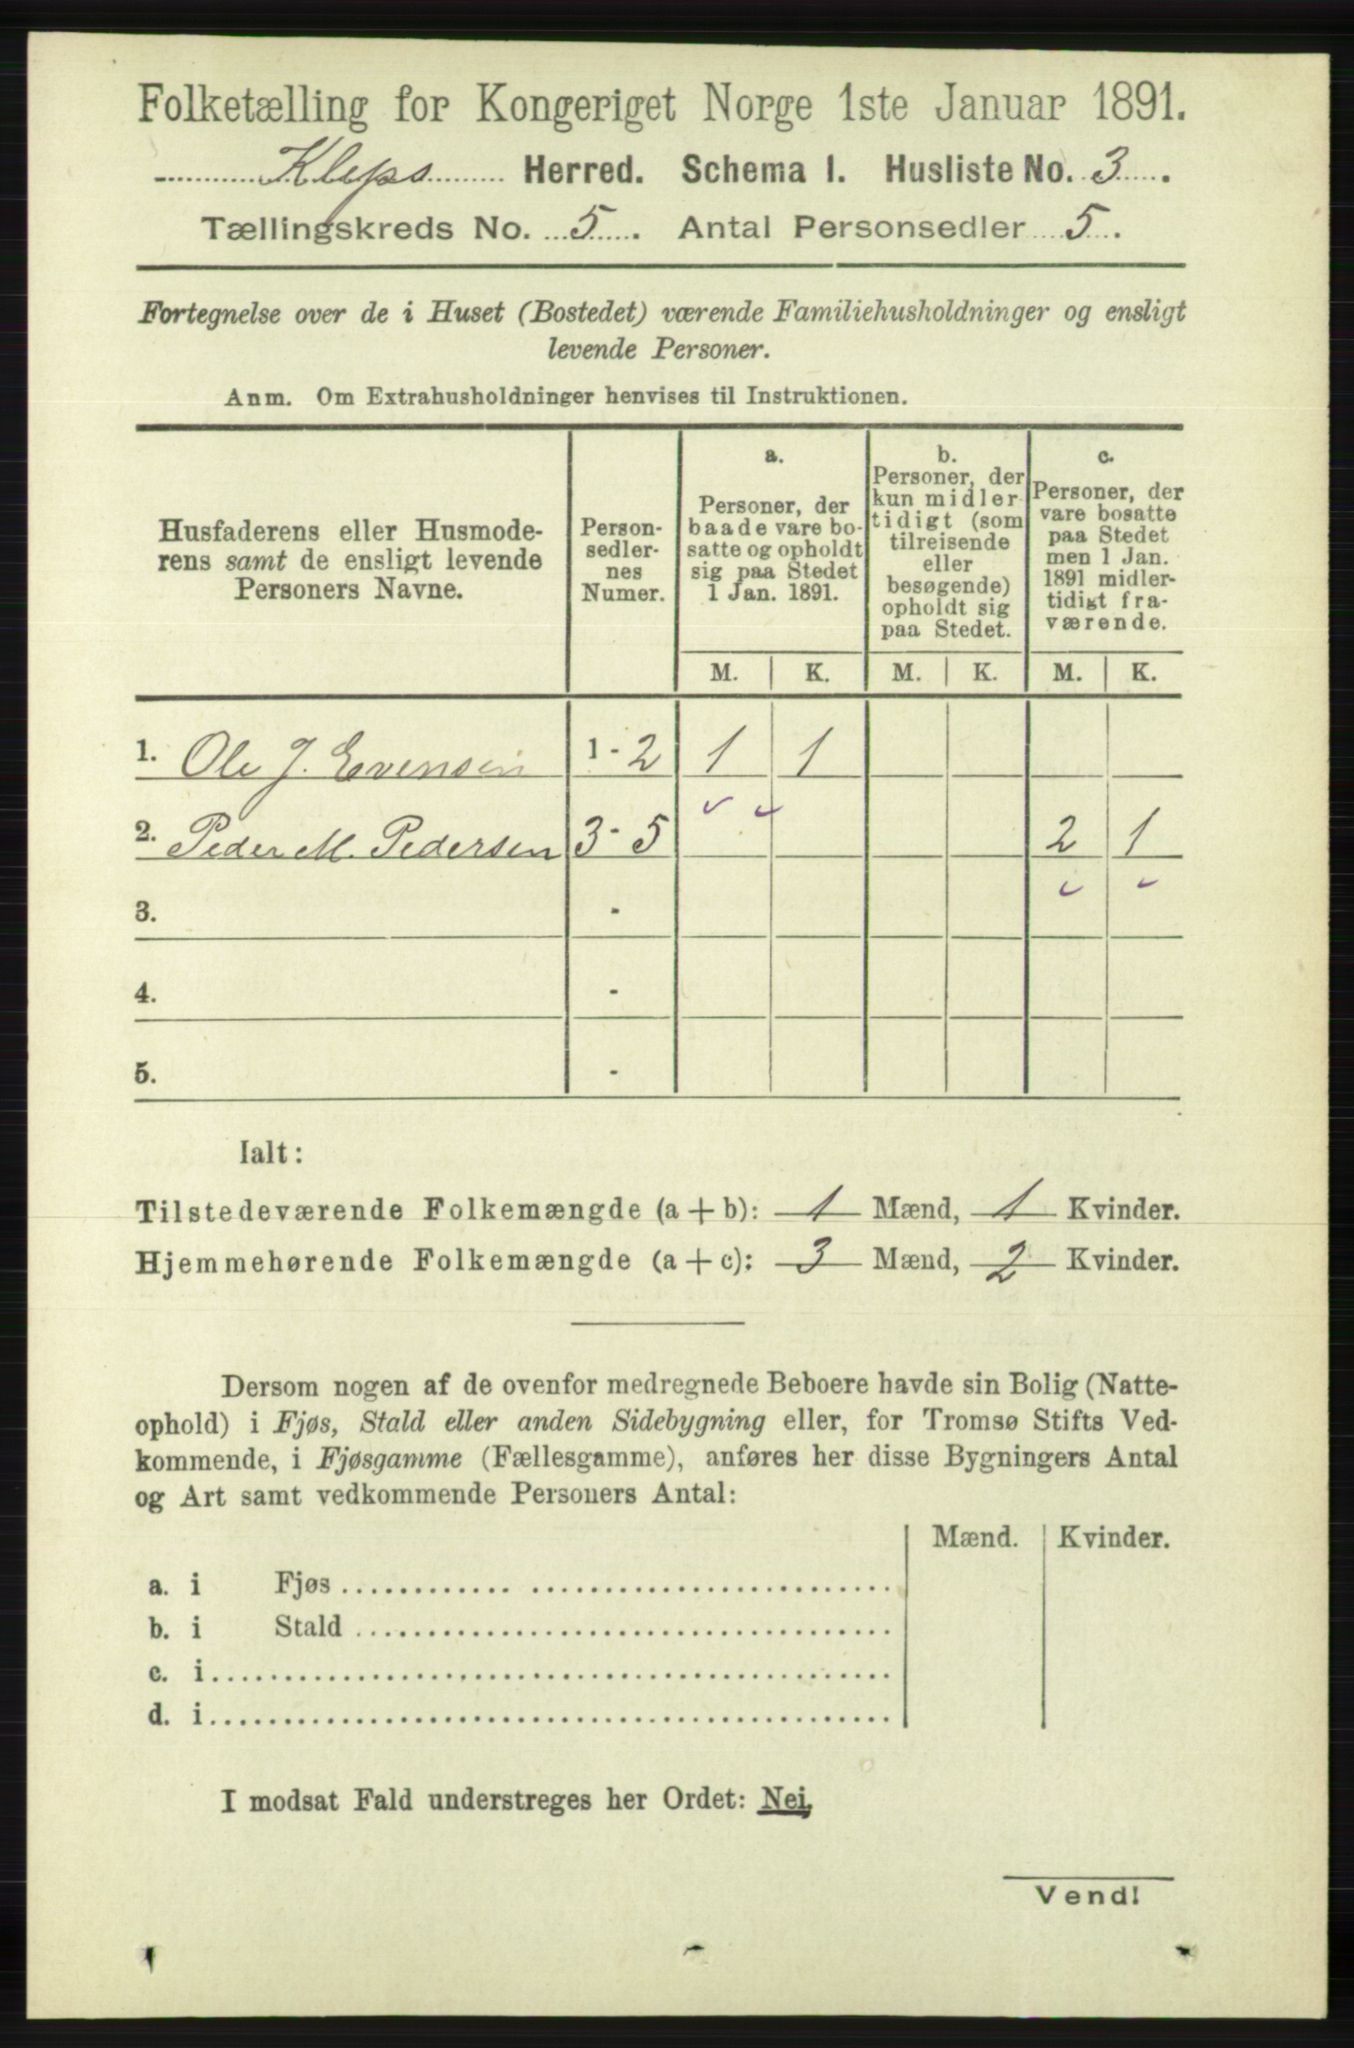 Folketælling for Kongeriget Norge 1ste Januar 1891.
Kleps Herred. Schema I. Husliste No. 3.
Tællingskreds No. 5. Antal Personsedler 5.
Fortegnelse over de i Huset (Bostedet) værende Familiehusholdninger og ensligt
levende Personer.
Anm. Om Extrahusholdninger henvises til Instruktionen.
Husfaderens eller Husmode-
rens samt de ensligt levende
Personers Navne.
Person-
sedler-
nes
Numer.
a.
Personer, der
baade vare bo-
satte og opholdt
sig paa Stedet
1 Jan. 1891.
b.
Personer, der
kun midler-
tidigt (som
tilreisende
eller
besøgende)
opholdt sig
paa Stedet.
c.
Personer, der
vare bosatte
paa Stedet
men 1 Jan.
1891 midler-
tidigt fra-
værende.
M. K. M. K. M. K.
1. Ole J. Evensen 1 - 2 1 1
2. Peder M. Pedersen 3 - 5 2 1
3. -
4. -
5. -
Ialt:
Tilstedeværende Folkemængde (a + b): 1 Mænd, 1 Kvinder.
Hjemmehørende Folkemængde (a + c): 3 Mænd, 2 Kvinder.
Dersom nogen af de ovenfor medregnede Beboere havde sin Bolig (Natte-
ophold) i Fjøs, Stald eller anden Sidebygning eller, for Tromsø Stifts Ved-
kommende, i Fjøsgamme (Fællesgamme), anføres her disse Bygningers Antal
og Art samt vedkommende Personers Antal:
Mænd. Kvinder.
a. i Fjøs
b. i Stald
c. i
d. i
I modsat Fald understreges her Ordet: Nei.
Vend!